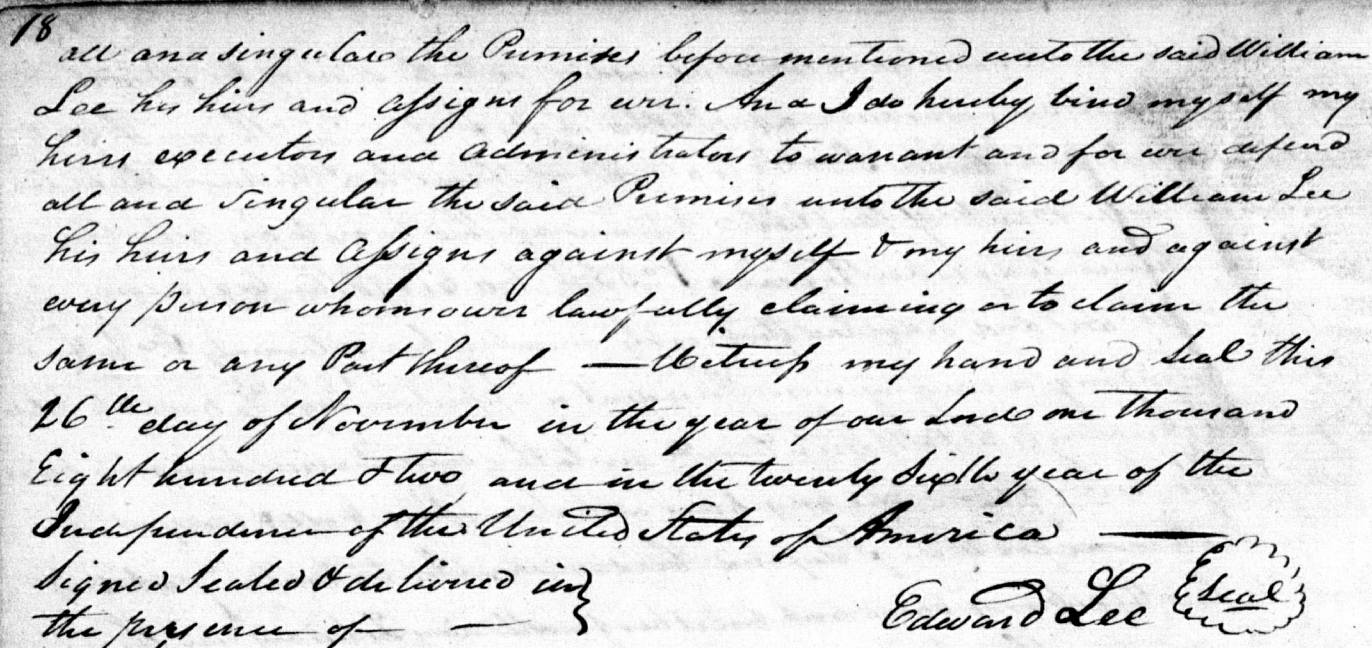 18
all and singular the Premises before mentioned unto the said William
Lee his heirs and assigns for ever. And I do hereby bind myself my
heirs executors and administrators to warrant and for ever defend
all and Singular the said Premises unto the said William Lee
his heirs and Assigns against myself & my heirs and against
every person whomsoever lawfully claiming or to claim the
same or any Part thereof — Witness my hand and Seal this
26th day of November in the year of our Lord one thousand
Eight hundred & two and in the twenty Sixth year of the
Independence of the United States of America —
Signed Sealed & delivered in
the presence of —
Edward Lee
Seal